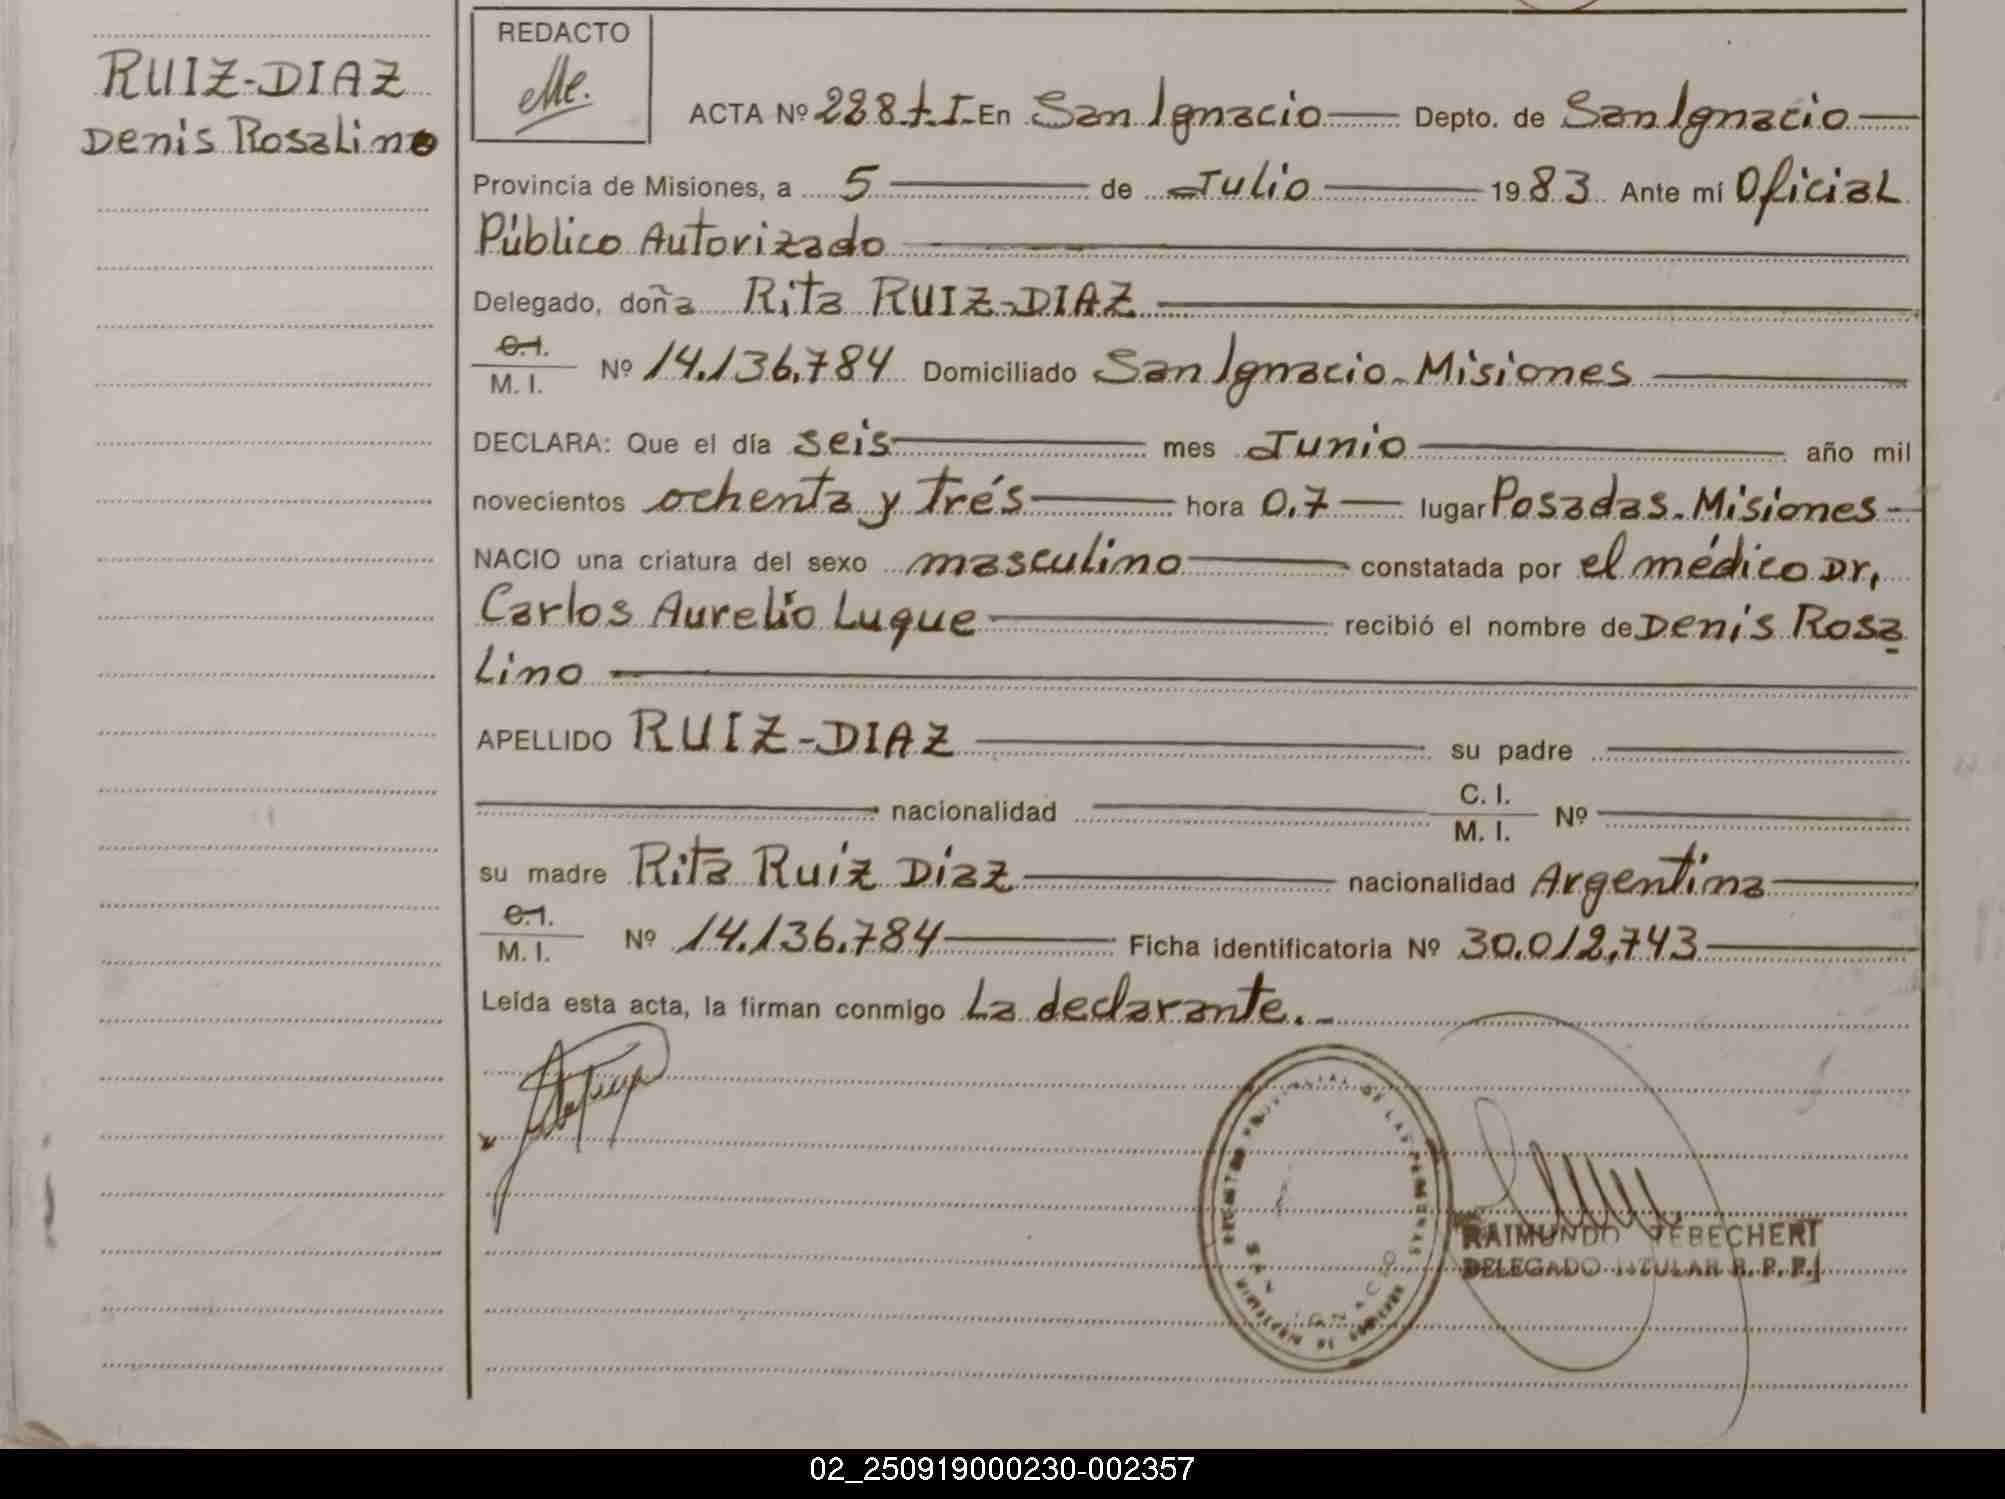 RUIZ-DIAZ
Denis Rosalino
REDACTO
ACTA Nº 288 t.I. En San Ignacio Depto. de San Ignacio
Provincia de Misiones, a 5 de Julio 1983 Ante mí Oficial
Público Autorizado
Delegado, doña Rita RUIZ-DIAZ
C.I.
M. I. Nº 14.136.784 Domiciliado San Ignacio-Misiones
DECLARA: Que el día seis mes Junio año mil
novecientos ochenta y trés hora 0.7 lugar Posadas-Misiones
NACIO una criatura del sexo masculino constatada por el médico Dr.
Carlos Aurelio Luque recibió el nombre de Denis Rosa
Lino
APELLIDO RUIZ-DIAZ su padre
nacionalidad C. I.
M. I. Nº
su madre Rita Ruiz Diaz nacionalidad Argentina
C.I.
M. I. Nº 14.136.784 Ficha identificatoria Nº 30.012.743
Leída esta acta, la firman conmigo La declarante.-
REGISTRO PROVINCIAL DE LAS PERSONAS
SAN IGNACIO
RAIMUNDO
DELEGADO TITULAR R. P. P.
02_250919000230-002357